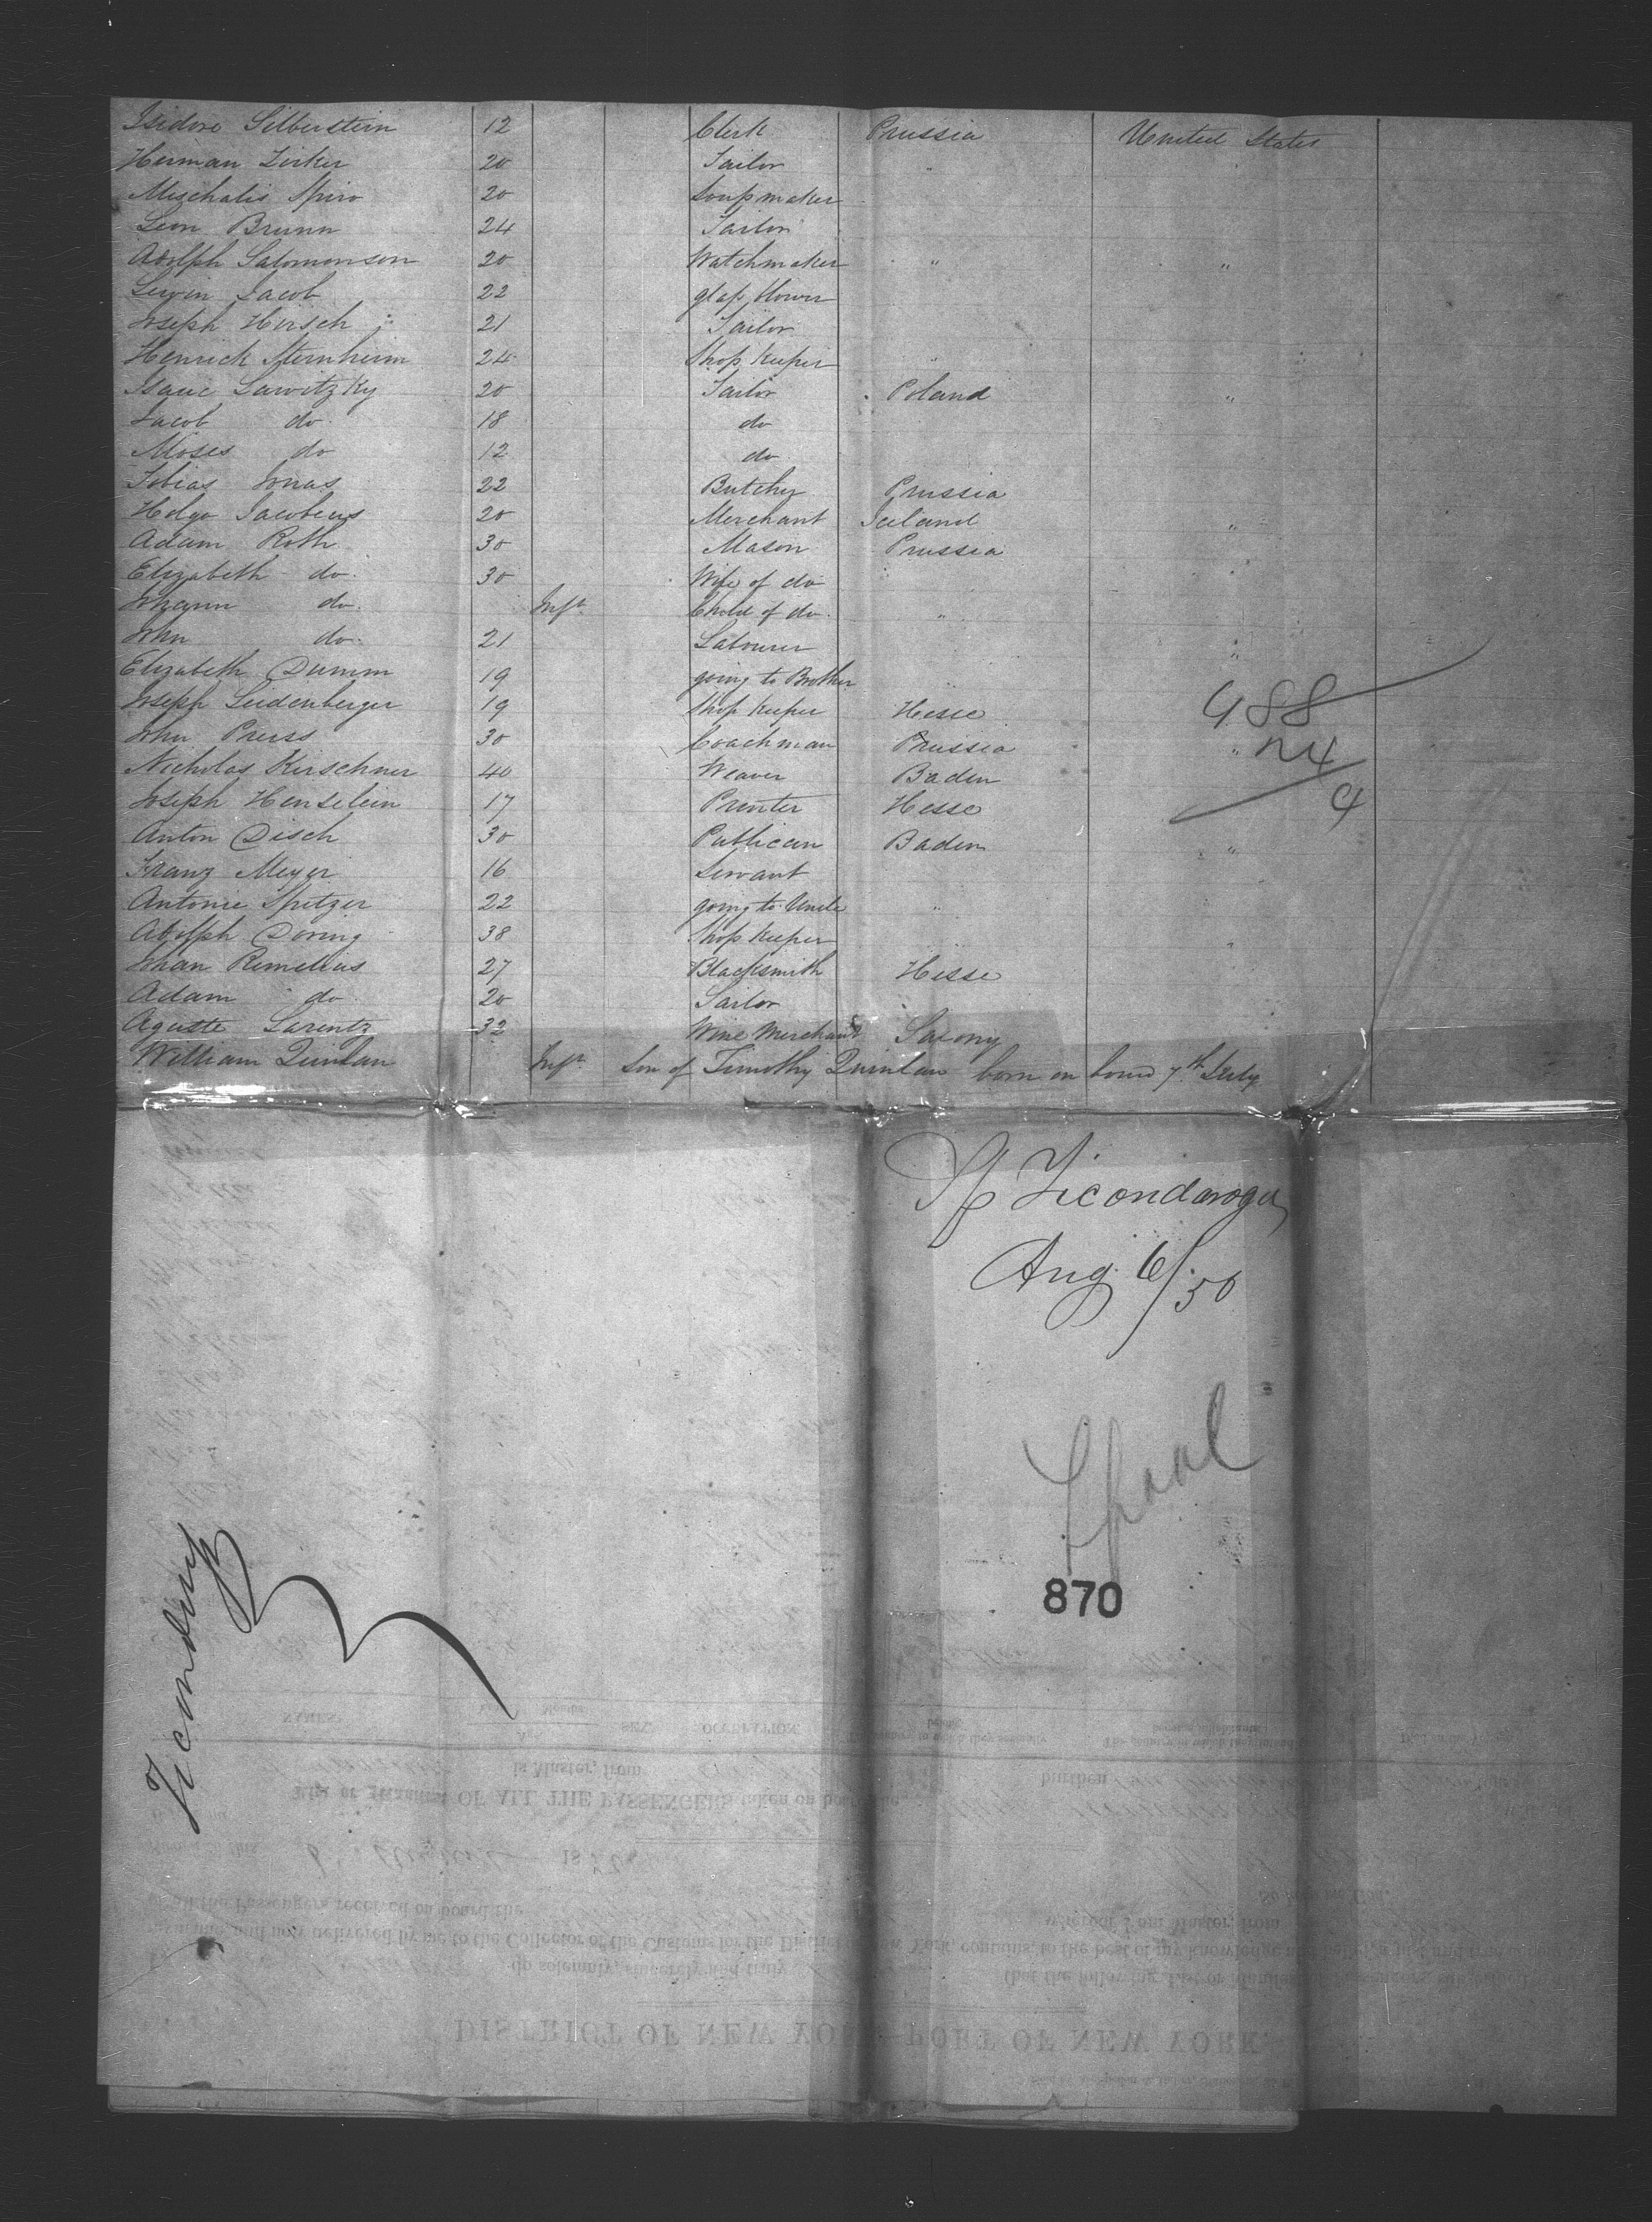 Isidore Silberstein 12 Clerk Prussia United States
Herman Zirker 20 Tailor "
Mischalis Spiro 20 Soapmaker
Leon Brunn 24 Tailor
Adolph Salomonson 20 Watchmaker " "
Lewin Jacob 22 glass blower
Joseph Hirsch 21 Tailor
Henrick Sternheim 24 Shop Keeper "
Isaac Lawitzky 20 Tailor Poland "
Jacob do 18 do
Moses do 12 do
Tobias Jonas 22 Butcher Prussia
Helge Jacobeus 20 Merchant Iceland "
Adam Roth 30 Mason Prussia
Elizabeth do 30 Wife of do
Johann do Inft Child of do "
John do 21 Labourer "
Elizabeth Dumm 19 going to Brother "
Joseph Seidenberger 19 Shop Keeper Hesse 988
John Preiss 30 Coachman Prussia " 24
Nicholas Kirschner 40 Weaver Baden
Joseph Henselein 17 Printer Hesse 9
Anton Disch 30 Publican Baden "
Franz Meyer 16 Servant
Antonie Spitzer 22 going to Uncle "
Adolph Doring 38 Shop Keeper "
Johan Remelius 27 Blacksmith Hesse
Adam do 20 Tailor
Aguste Larentz 32 Wine Merchant Saxony
William Quinlan Inft Son of Timothy Quinlan born on board 7th July
Ticondaroga
Aug 6/50
Lpool
870
DISTRICT OF NEW YORK—PORT OF NEW YORK